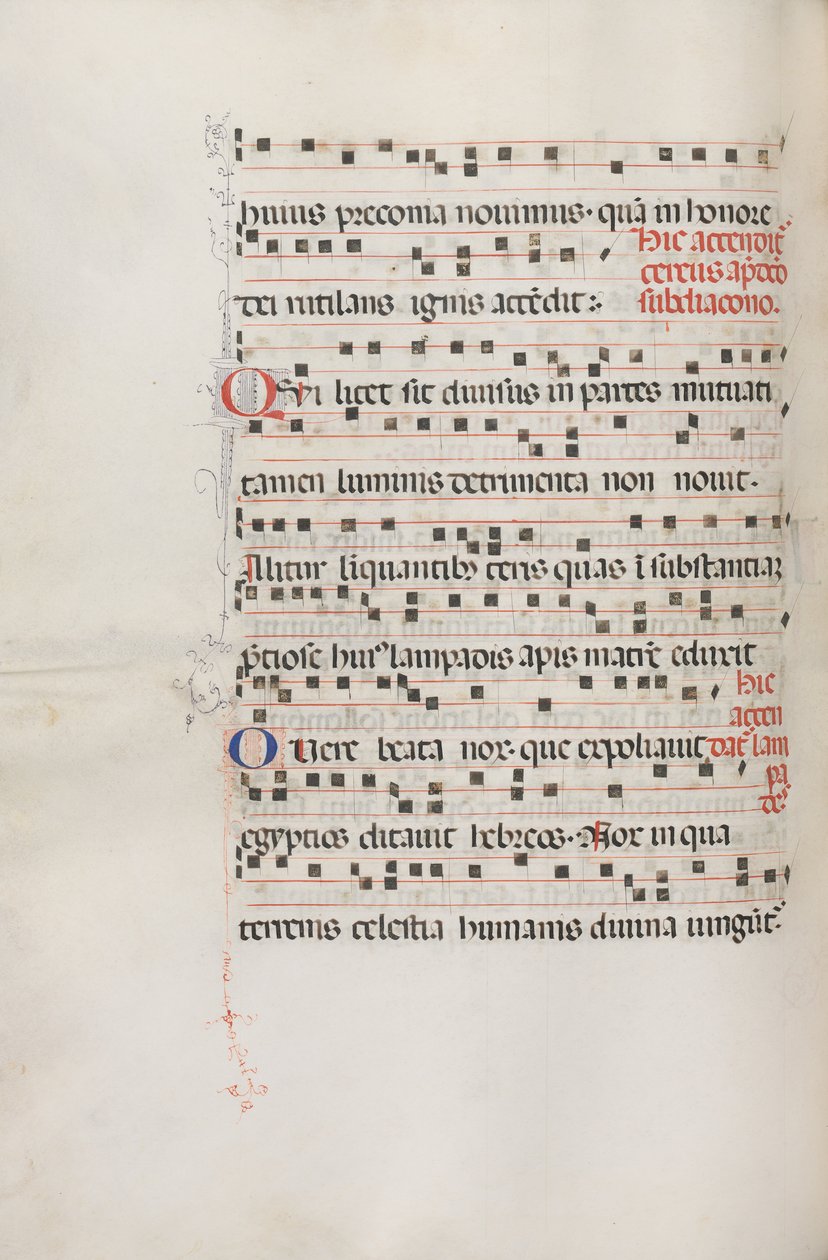 huius preconia nouimus. quā in honore
Hic accendit̄
cereus ap̄dc̄o
subdiacono.
dei rutilans ignis accēdit:
QVi licet sit diuisus in partes mutuati
tamen luminis detrimenta non nouit.
Alitur liquantibꝫ ceris quas ī substantiaꝫ
p̄tiose huiꝰ lampadis apis mater̄ eduxit
Hic
accen
O Vere beata nox. que expoliauit
dat̄ lam
pa
des
egyptios ditauit hebreos. Nox in qua
terrenis celestia humanis diuina iungūt̄.